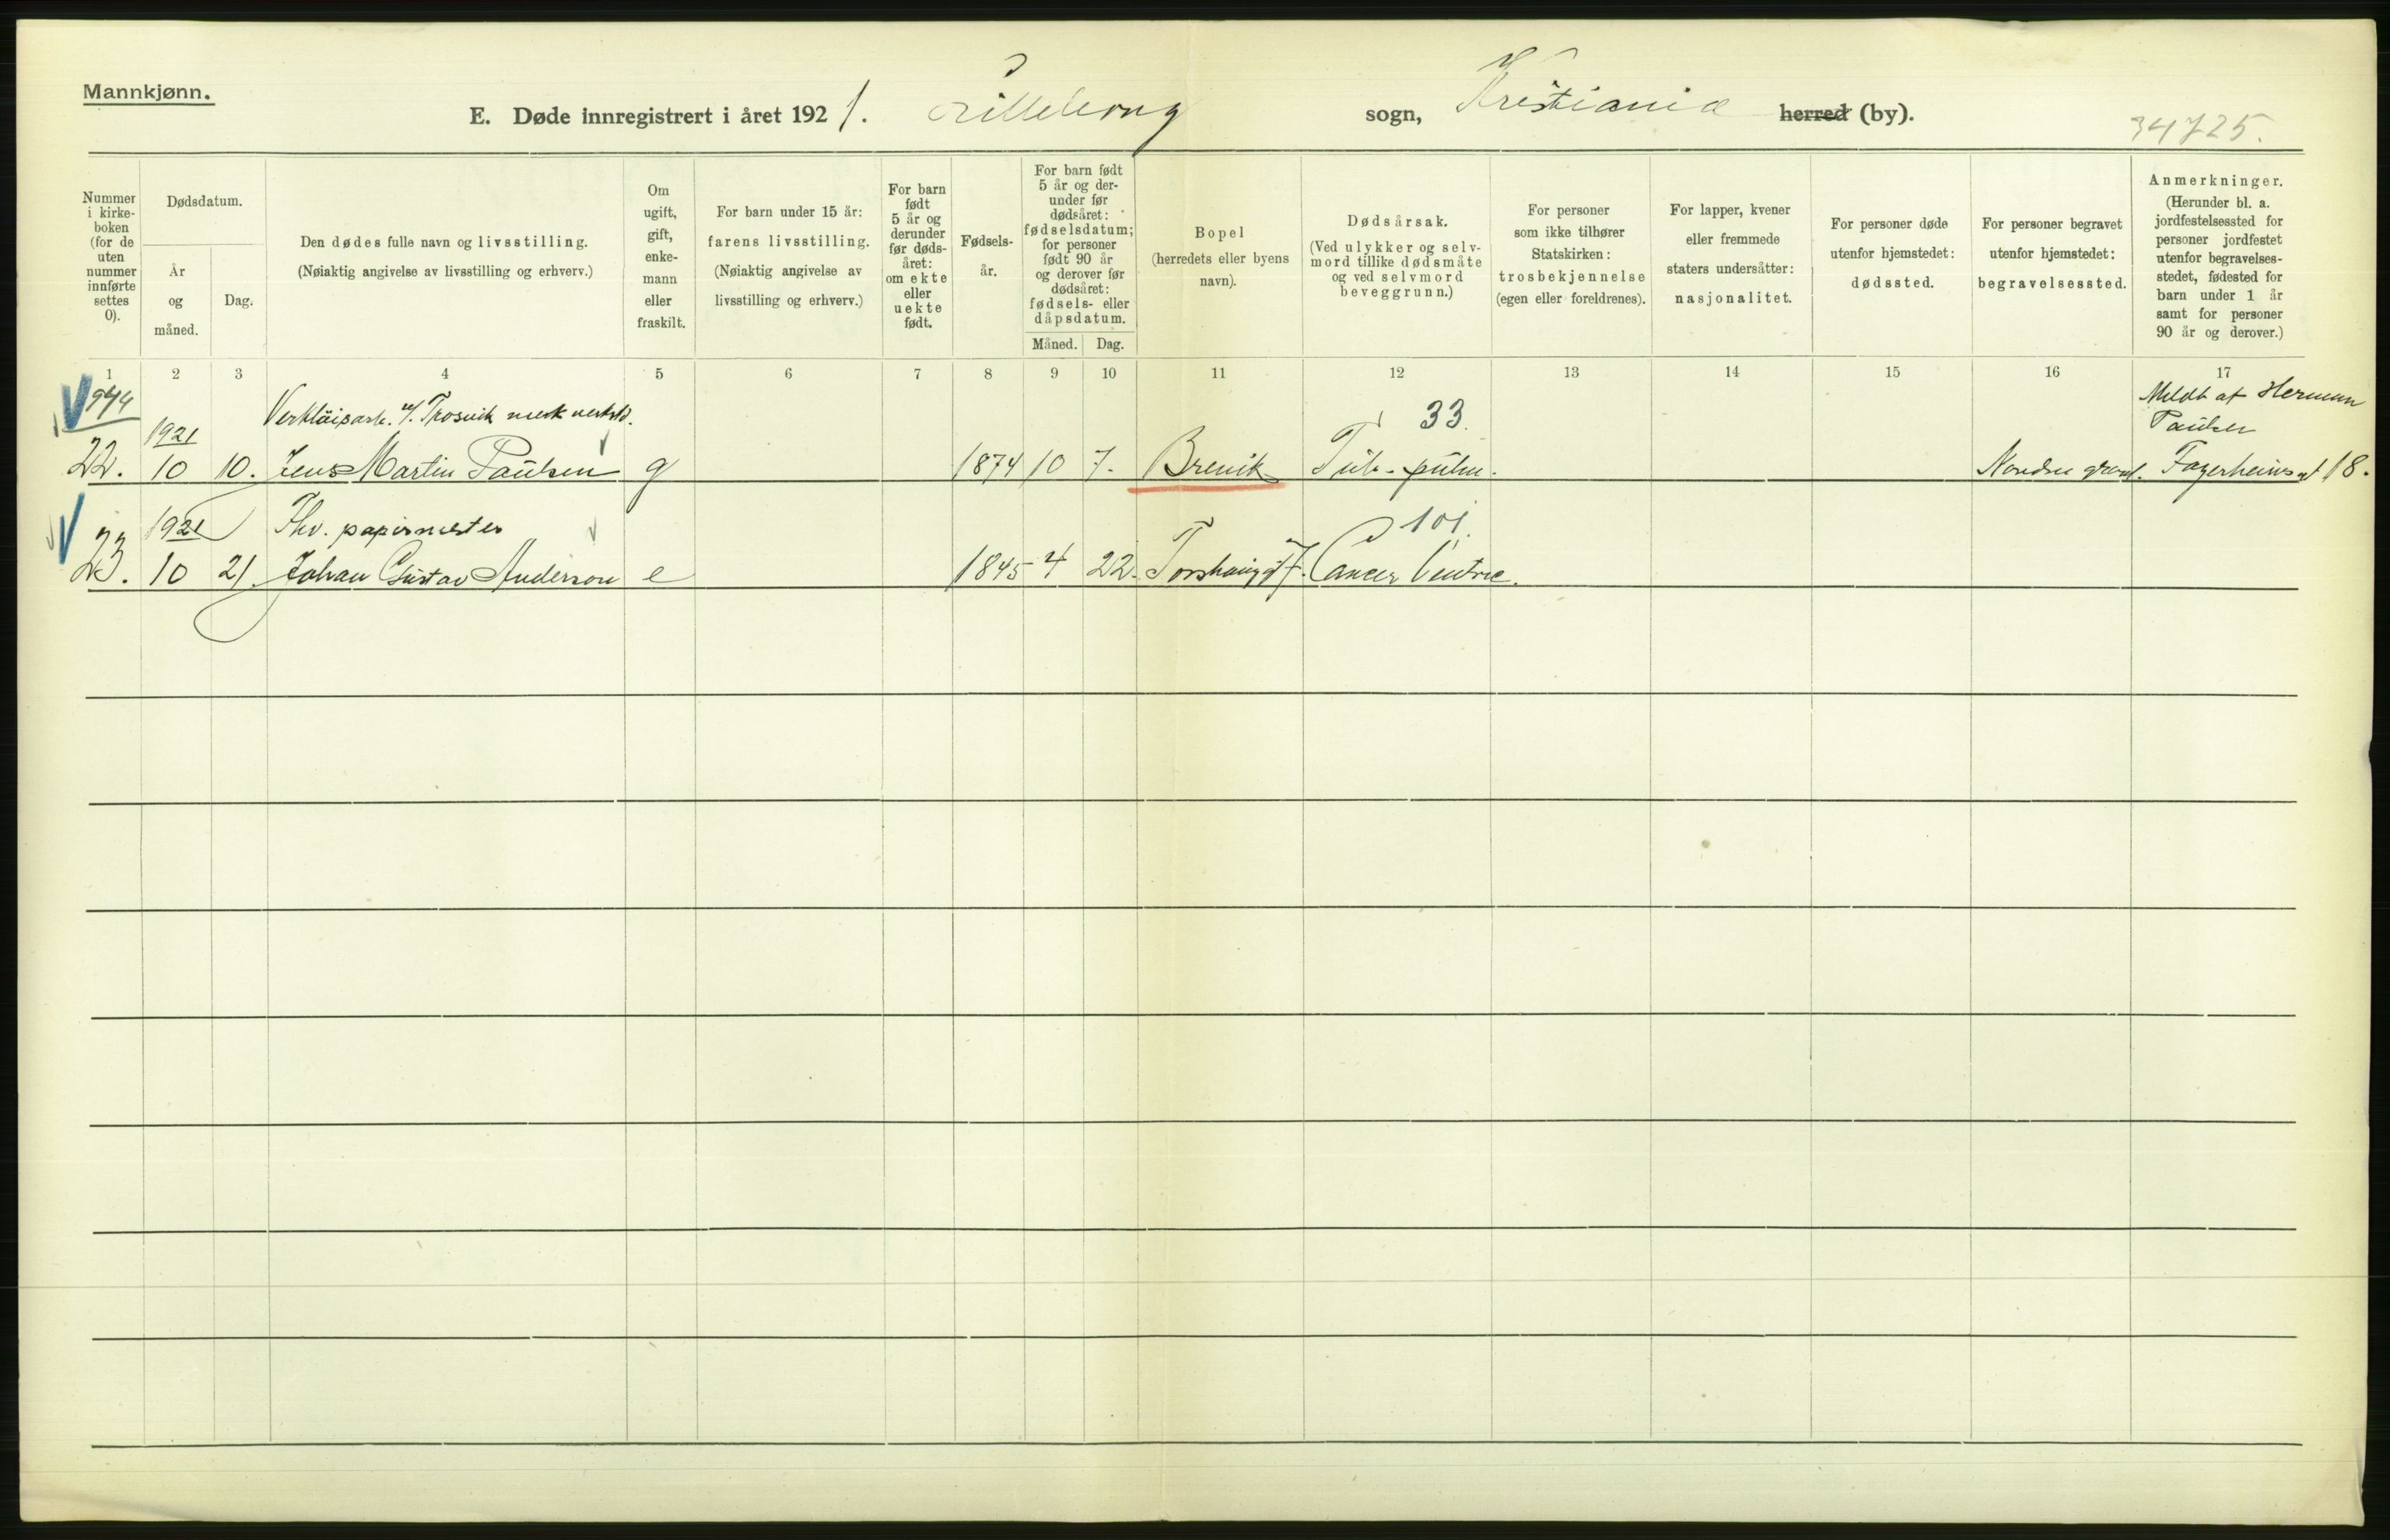 Mannkjønn.
E. Døde innregistrert i året 1921. Lilleborg sogn, Kristiania herred (by).
34725.
Nummer i kirke- boken (for de uten nummer innførte settes 0).
Dødsdatum.
År og måned.
Dag.
Den dødes fulle navn og livsstilling.
(Nøiaktig angivelse av livsstilling og erhverv.)
Om ugift, gift, enke- mann eller fraskilt.
For barn under 15 år:
farens livsstilling.
(Nøiaktig angivelse av
livsstilling og erhverv.)
For barn født 5 år og derunder før døds- året: om ekte eller uekte født.
Fødsels- år.
For barn født 5 år og der- under før dødsåret: fødselsdatum; for personer født 90 år og derover før dødsåret: fødsels- eller dåpsdatum.
Måned. Dag.
Bopel
(herredets eller byens navn).
Dødsårsak.
(Ved ulykker og selv- mord tillike dødsmåte og ved selvmord beveggrunn.)
For personer som ikke tilhører Statskirken: trosbekjennelse (egen eller foreldrenes).
For lapper, kvener eller fremmede staters undersåtter: nasjonalitet.
For personer døde utenfor hjemstedet: dødssted.
For personer begravet utenfor hjemstedet: begravelsessted.
Anmerkninger.
(Herunder bl. a. jordfestelsessted for personer jordfestet utenfor begravelses- stedet, fødested for barn under 1 år samt for personer 90 år og derover.)
1 2 3 4 5 6 7 8 9 10 11 12 13 14 15 16 17
V 944 1921 Verktöiparb. v/. Trosvik mek verksted. 33. Meldt af Herman Paulsen
22. 10 10. Jens Martin Paulsen g 1874 10 7. Brevik Tub. pulm. Nordre gravl. Fagerheimsgt 18.
V 1921 Fhv. papirmester 101.
23. 10 21. Johan Gustav Anderson e 1845 4 22. Torshauggt 7. Cancer Ventric.